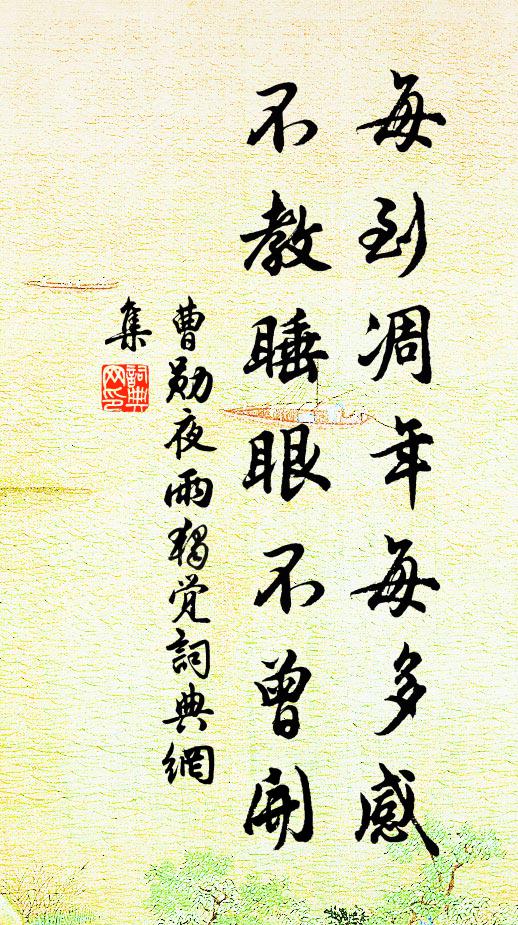 每到凋年每多感
不教睡眼不曾開
曹勛夜雨獨覺詞典網
集
詞典
网印